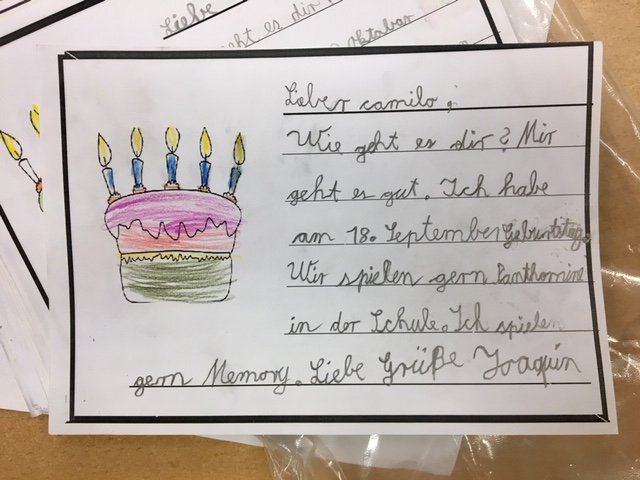 Liebe
geht es dir
Oktober
Lieber camilo,
Wie geht es dir? Mir
geht es gut. Ich habe
am 18. September Geburtstag.
Wir spielen gern Panthomine
in der Schule. Ich spielen
gern Memory. Liebe Grüße Joaquin